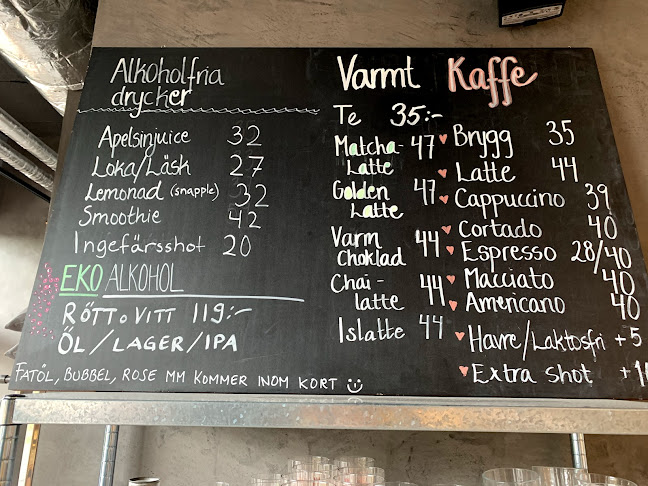 Alkoholfria
drycker
Apelsinjuice 32
Loka/Läsk 27
Lemonad (snapple) 32
Smoothie 42
Ingefärsshot 20
EKO ALKOHOL
RÖTT o VITT 119:-
ÖL/LAGER/IPA
Varmt
Te 35:-
Matcha-
Latte 47
Golden
Latte 47
Varm
Choklad 44
Chai-
latte 44
Islatte 44
Kaffe
Brygg 35
Latte 44
Cappuccino 39
Cortado 40
Espresso 28/40
Macciato 40
Americano 40
Havre/Laktosfri +5
Extra shot
FATÖL, BUBBEL, ROSE MM KOMMER INOM KORT